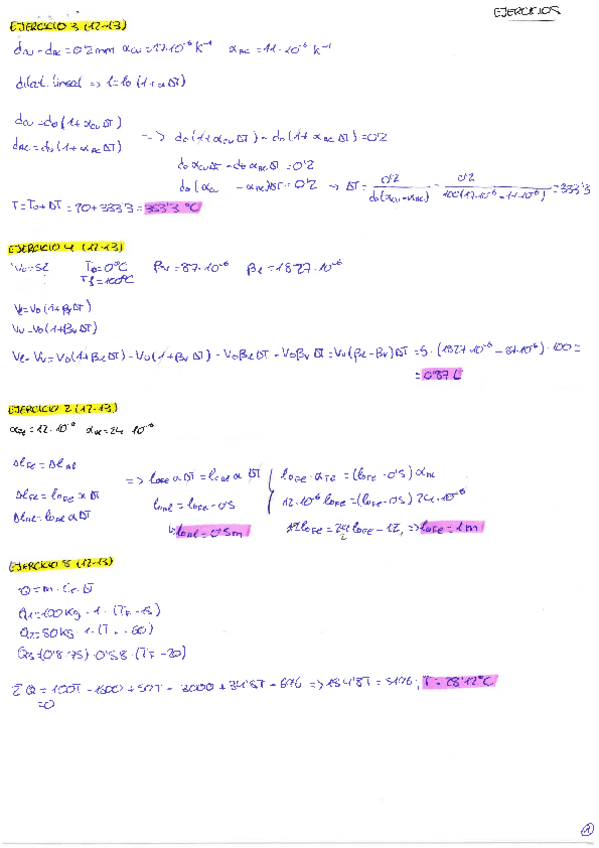 EJERCICIOS
EJERCICIO 3 (12-13)
dcu - dac = 0'2 mm αcu = 17·10⁻⁶ K⁻¹ αac = 11·10⁻⁶ K⁻¹
dilat. lineal => l = l0 (1+αΔT)
dcu = d0 (1+αcuΔT)
dac = d0 (1+αacΔT)
=> d0 (1+αcuΔT) - d0 (1+αacΔT) = 0'2
d0 αcuΔT - d0 αacΔT = 0'2
d0 (αcu - αac)ΔT = 0'2 → ΔT = 0'2 / d0(αcu-αac) = 0'2 / 100(17·10⁻⁶ - 11·10⁻⁶) = 333'3
T = T0 + ΔT = 20 + 333'3 = 353'3 ºC
EJERCICIO 4 (12-13)
V0 = 5L T0 = 0ºC βv = 87·10⁻⁶ βl = 1827·10⁻⁶
Tf = 100ºC
Vl = V0 (1+βlΔT)
Vv = V0 (1+βvΔT)
Vl - Vv = V0(1+βlΔT) - V0(1+βvΔT) = V0βlΔT - V0βvΔT = V0(βl-βv)ΔT = 5·(1827·10⁻⁶ - 87·10⁻⁶)·100 =
= 0'87 L
EJERCICIO 2 (12-13)
αfe = 12·10⁻⁶ αal = 24·10⁻⁶
Δlfe = Δlal
Δlfe = l0fe αΔT
Δlal = l0al αΔT
=> l0fe αΔT = l0al αΔT
l0al = l0fe - 0'5
l0al = 0'5m
l0fe·αfe = (l0fe - 0'5) αal
12·10⁻⁶ l0fe = (l0fe - 0'5) 24·10⁻⁶
12 l0fe = 24 l0fe - 12, => l0fe = 1m
EJERCICIO 5 (12-13)
Q = m·Ce·ΔT
Q1 = 100Kg·1·(TF - 15)
Q2 = 50Kg·1·(TF - 60)
Q3 = (0'8·75)·0'58·(TF - 20)
ΣQ = 100T - 1500 + 50T - 3000 + 34'8T - 676 => 184'8T = 5176; T = 28'12ºC
=0
1